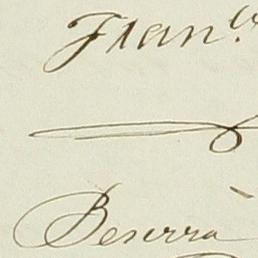 Fran.co
Beserra